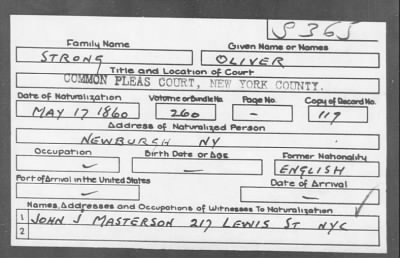 S 365
Family Name Given Name or Names
STRONG OLIVER
Title and Location of Court
COMMON PLEAS COURT, NEW YORK COUNTY.
Date of Naturalization Volume or Bundle No. Page No. Copy of Record No.
MAY 17 1860 260 - 119
Address of Naturalized Person
NEWBURGH NY
Occupation Birth Date or Age Former Nationality
ENGLISH
Port of Arrival in the United States Date of Arrival
Names, Addresses and Occupations of Witnesses To Naturalization
1 JOHN J MASTERSON 217 LEWIS ST NYC
2